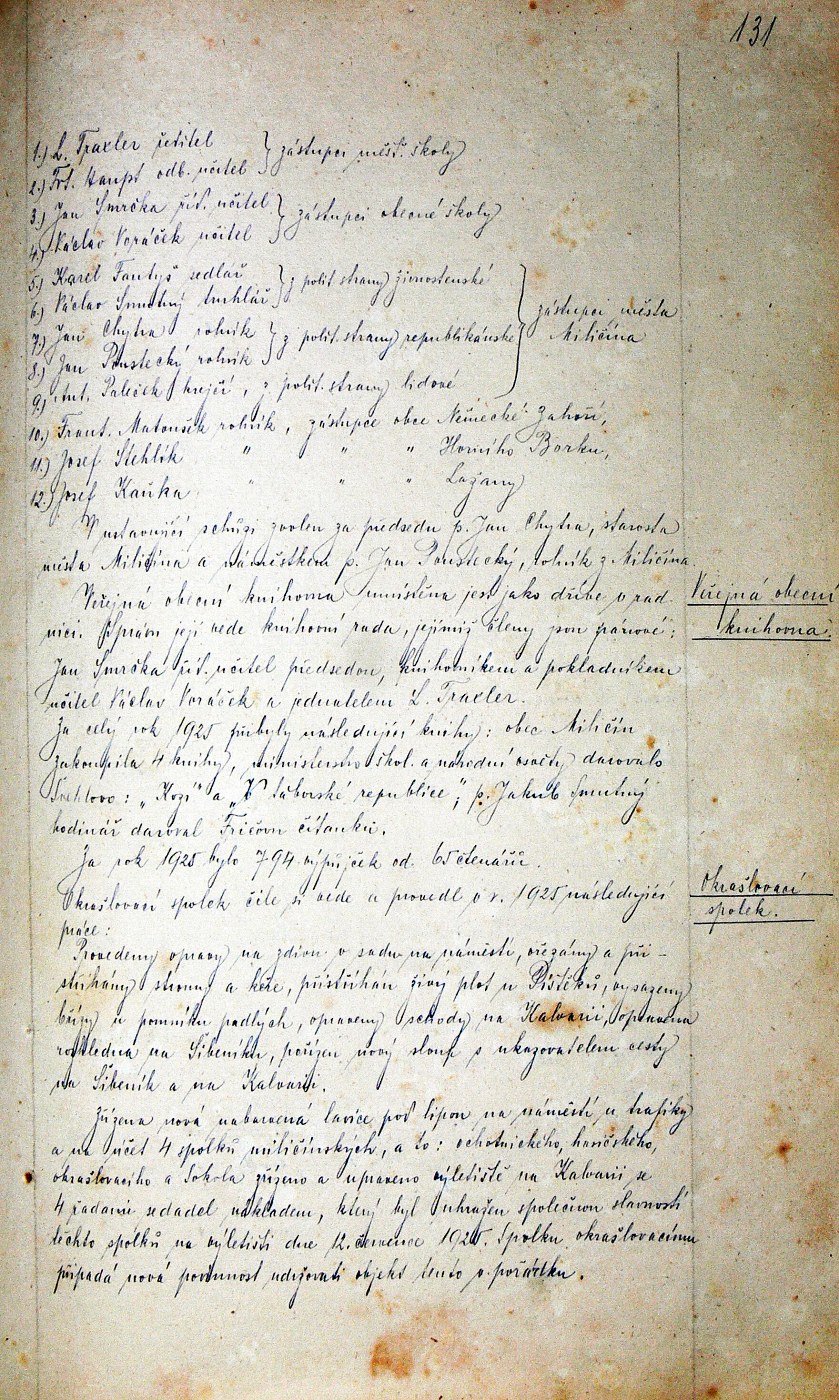 131
1.) L. Traxler ředitel } zástupci měšť. školy
2.) Frt. Haupt odb. učitel
3.) Jan Smrčka říd. učitel } zástupci obecné školy
4.) Václav Voráček učitel
5.) Karel Fantyš sedlář } z polit. strany živnostenské
6.) Václav Smutný truhlář
7.) Jan Chytra rolník } z polit. strany republikánské } zástupci města Miličína
8.) Jan Poustecký rolník
9.) Ant. Paleček krejčí, z polit. strany lidové
10.) Frant. Matoušek rolník, zástupce obce Německé Záhoří,
11.) Josef Stehlík " " " Horního Borku,
12.) Josef Kaňka " " " Lažany
V ustavující schůzi zvolen za předsedu p. Jan Chytra, starosta
města Miličína a náměstkem p. Jan Poustecký, rolník z Miličína.
Veřejná obecní
knihovna.
Veřejná obecní knihovna umístěna jest jako dříve v rad-
nici. Správu její vede knihovní rada, jejímiž členy jsou pánové:
Jan Smrčka říd. učitel předsedou, knihovníkem a pokladníkem
učitel Václav Voráček a jednatelem L. Traxler.
Za celý rok 1925 přibyly následující knihy: obec Miličín
zakoupila 4 knihy, ministerstvo škol. a národní osvěty darovalo
Švehlovo: „Kozí" a „V táborské republice"; p. Jakub Smutný
hodinář daroval Fričovu čítanku.
Za rok 1925 bylo 794 výpůjček od 65 čtenářů.
Okrašlovací
spolek.
Okrašlovací spolek čile si vede a provedl v r. 1925 následující
práce:
Provedeny opravy na zdivu v sadu na náměstí, ořezány a při-
stříhány stromy a keře, přistříhán živý plot u Pištěků, vysazeny
břízy u pomníku padlých, opraveny schody na Kalvarii, opravena
rozhledna na Šibeníku, pořízen nový sloup s ukazovatelem cesty
na Šibeník a na Kalvarii.
Zřízena nová nabarvená lavice pod lipou na náměstí u trafiky
a na účet 4 spolků miličínských, a to: ochotnického, hasičského,
okrašlovacího a Sokola zřízeno a upraveno výletiště na Kalvarii se
4 řadami sedadel nákladem, který byl uhražen společnou slavností
těchto spolků na výletišti dne 12. července 1925. Spolku okrašlovacímu
připadá nová povinnost udržovati objekt tento v pořádku.